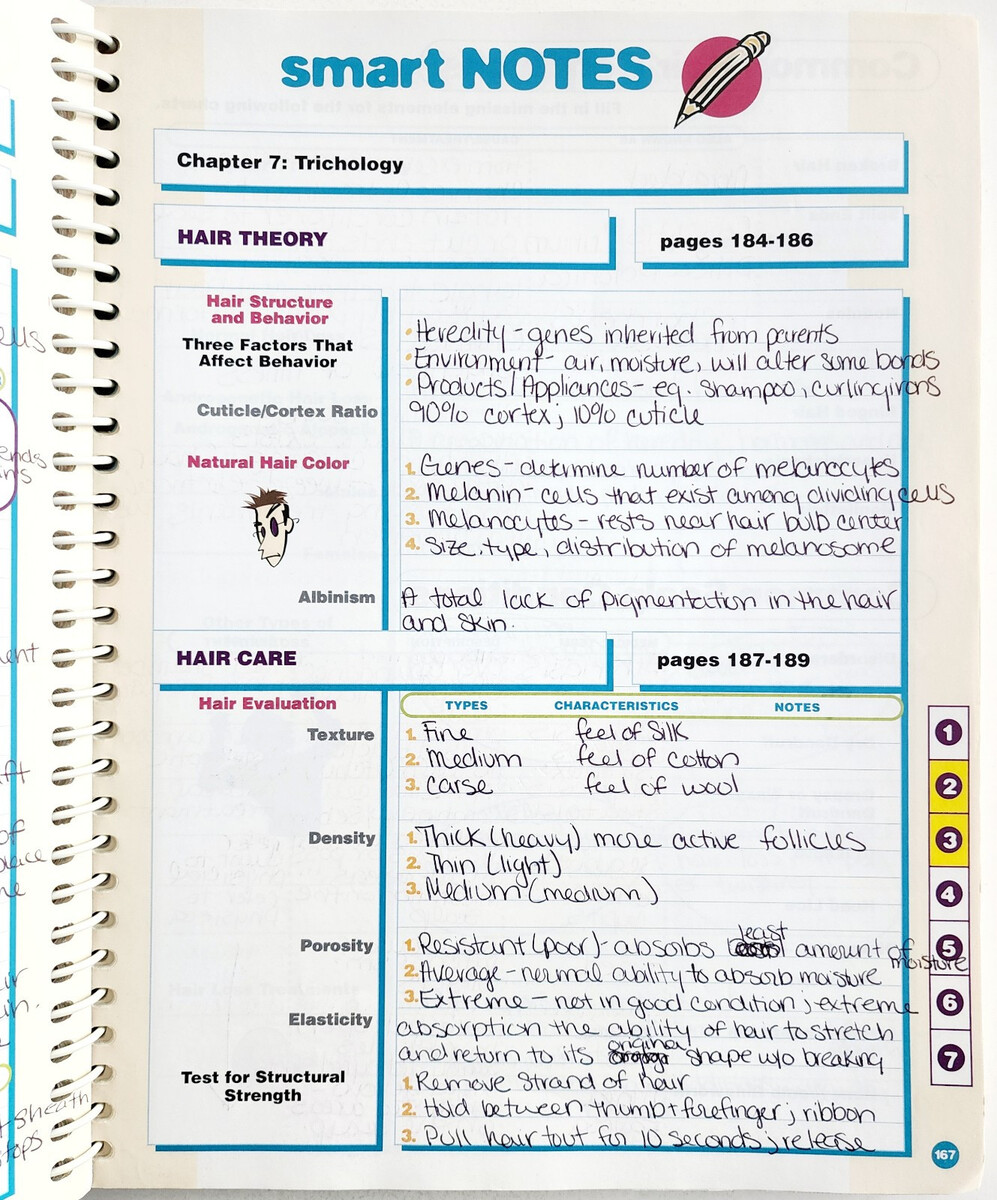 smart NOTES
Chapter 7: Trichology
HAIR THEORY
pages 184-186
Hair Structure
and Behavior
Three Factors That
Affect Behavior
• Heredity - genes inherited from parents
• Environment - air, moisture, will alter some bonds
• Products/Appliances - eg. Shampoo, curling irons
Cuticle/Cortex Ratio
90% cortex; 10% cuticle
Natural Hair Color
1. Genes - determine number of melanocytes
2. Melanin - cells that exist among dividing cells
3. Melanocytes - rests near hair bulb center
4. Size, type, distribution of melanosome
Albinism
A total lack of pigmentation in the hair
and skin.
HAIR CARE
pages 187-189
Hair Evaluation
TYPES CHARACTERISTICS NOTES
Texture
1. Fine feel of silk
2. Medium feel of cotton
3. Carse feel of wool
Density
1. Thick (heavy) more active follicles
2. Thin (light)
3. Medium (medium)
Porosity
1. Resistant (poor) - absorbs least amount of moisture
2. Average - normal ability to absorb moisture
3. Extreme - not in good condition; extreme
absorption
Elasticity
the ability of hair to stretch
and return to its original shape w/o breaking
Test for Structural
Strength
1. Remove strand of hair
2. Hold between thumb + forefinger; ribbon
3. Pull hair tout for 10 seconds; release
1
2
3
4
5
6
7
167